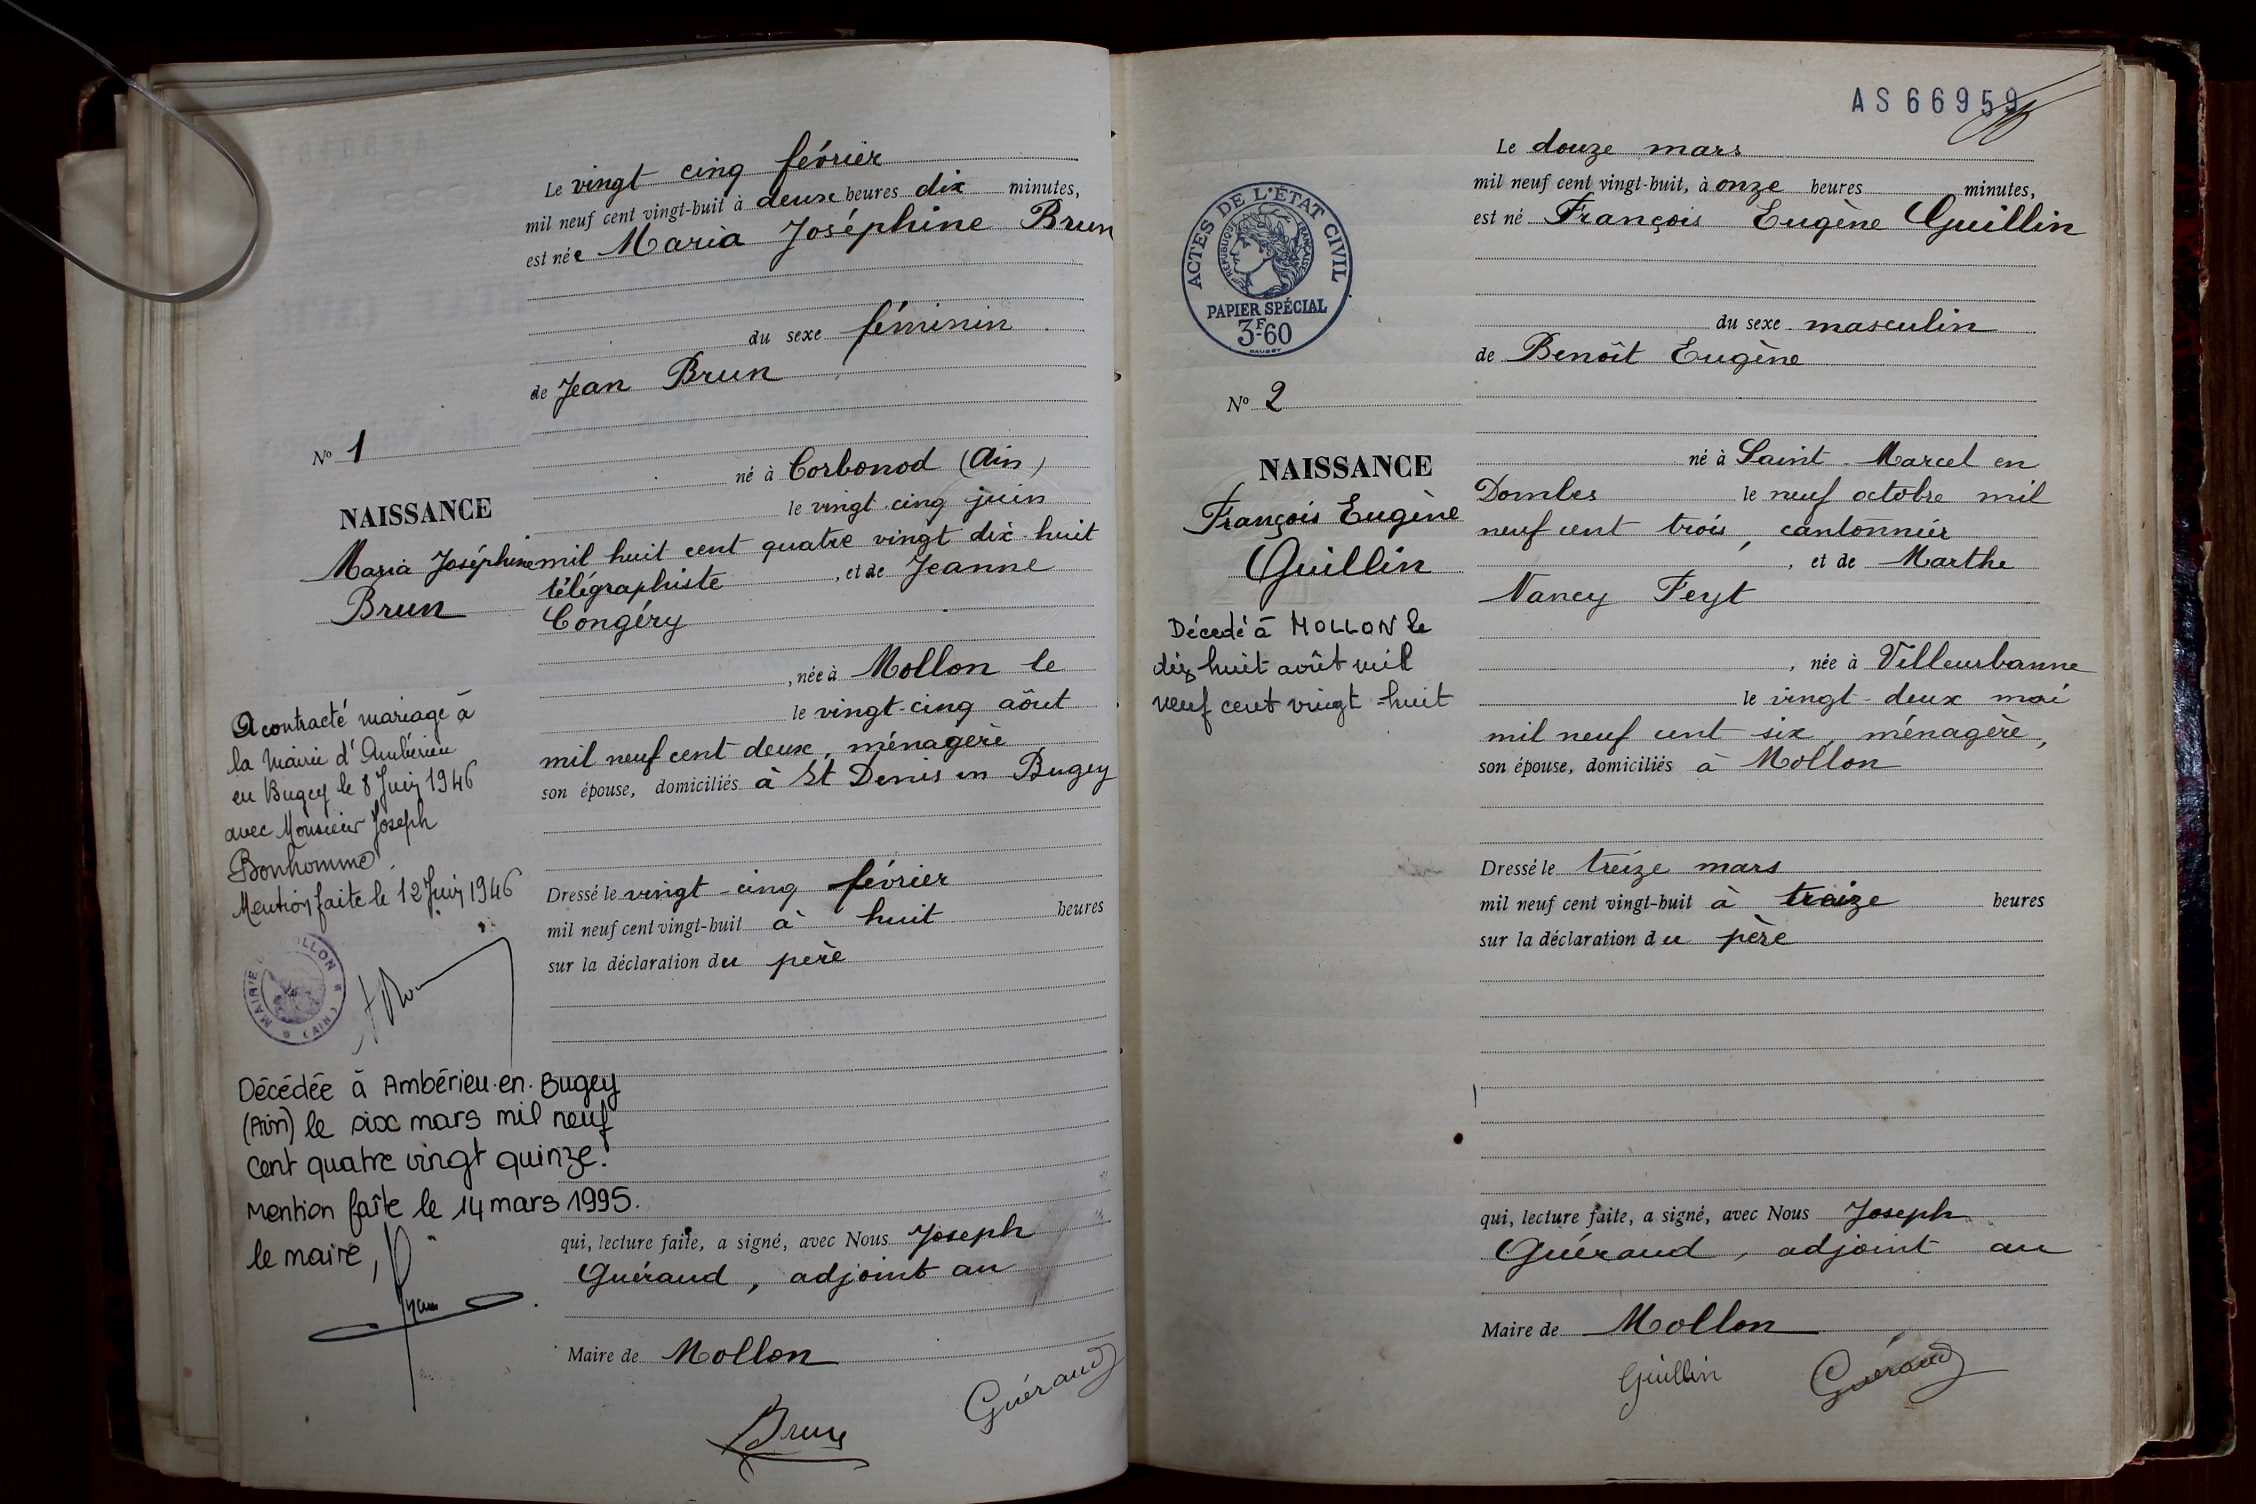 Le vingt cinq février
mil neuf cent vingt-huit à deux heures dix minutes,
est née Maria Joséphine Brun
du sexe féminin
de Jean Brun
N° 1
né à Corbonod (Ain)
le vingt cinq juin
NAISSANCE
Maria Joséphine
Brun
mil huit cent quatre vingt dix-huit
télégraphiste , et de Jeanne
Congéry
, née à Mollon le
le vingt-cinq aôut
mil neuf cent deux, ménagère
son épouse, domiciliés à St Denis en Bugey
A contracté mariage à
la Mairie d'Ambérieu
en Bugey le 8 Juin 1946
avec Monsieur Joseph
Bonhomme
Mention faite le 12 Juin 1946
MAIRIE DE MOLLON * (AIN) *
Dressé le vingt-cinq février
mil neuf cent vingt-huit à huit heures
sur la déclaration du père
Décédée à Ambérieu.en.Bugey
(Ain) le six mars mil neuf
cent quatre vingt quinze.
Mention faîte le 14 mars 1995.
le maire,
qui, lecture faite, a signé, avec Nous Joseph
Guéraud, adjoint au
Maire de Mollon
Brun
Guéraud
AS66959
Le douze mars
mil neuf cent vingt-huit, à onze heures minutes,
est né François Eugène Guillin
ACTES DE L'ÉTAT CIVIL
RÉPUBLIQUE FRANÇAISE
PAPIER SPÉCIAL
3F60
du sexe masculin
de Benoît Eugène
N° 2
né à Saint-Marcel en
NAISSANCE
François Eugène
Guillin
Dombes le neuf octobre mil
neuf cent trois, cantonnier
, et de Marthe
Nancy Feyt
, née à Villeurbanne
le vingt-deux mai
mil neuf cent six, ménagère,
son épouse, domiciliés à Mollon
Décedé à MOLLON le
dix huit août mil
neuf cent vingt-huit
Dressé le treize mars
mil neuf cent vingt-huit à treize heures
sur la déclaration du père
qui, lecture faite, a signé, avec Nous Joseph
Guéraud, adjoint au
Maire de Mollon
Guillin
Guéraud